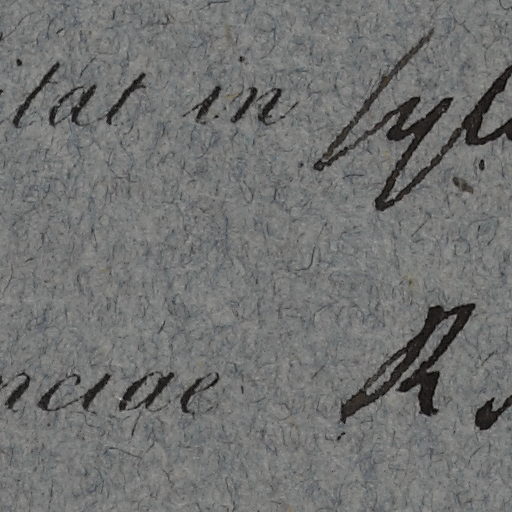 itat in syl
nciae R.